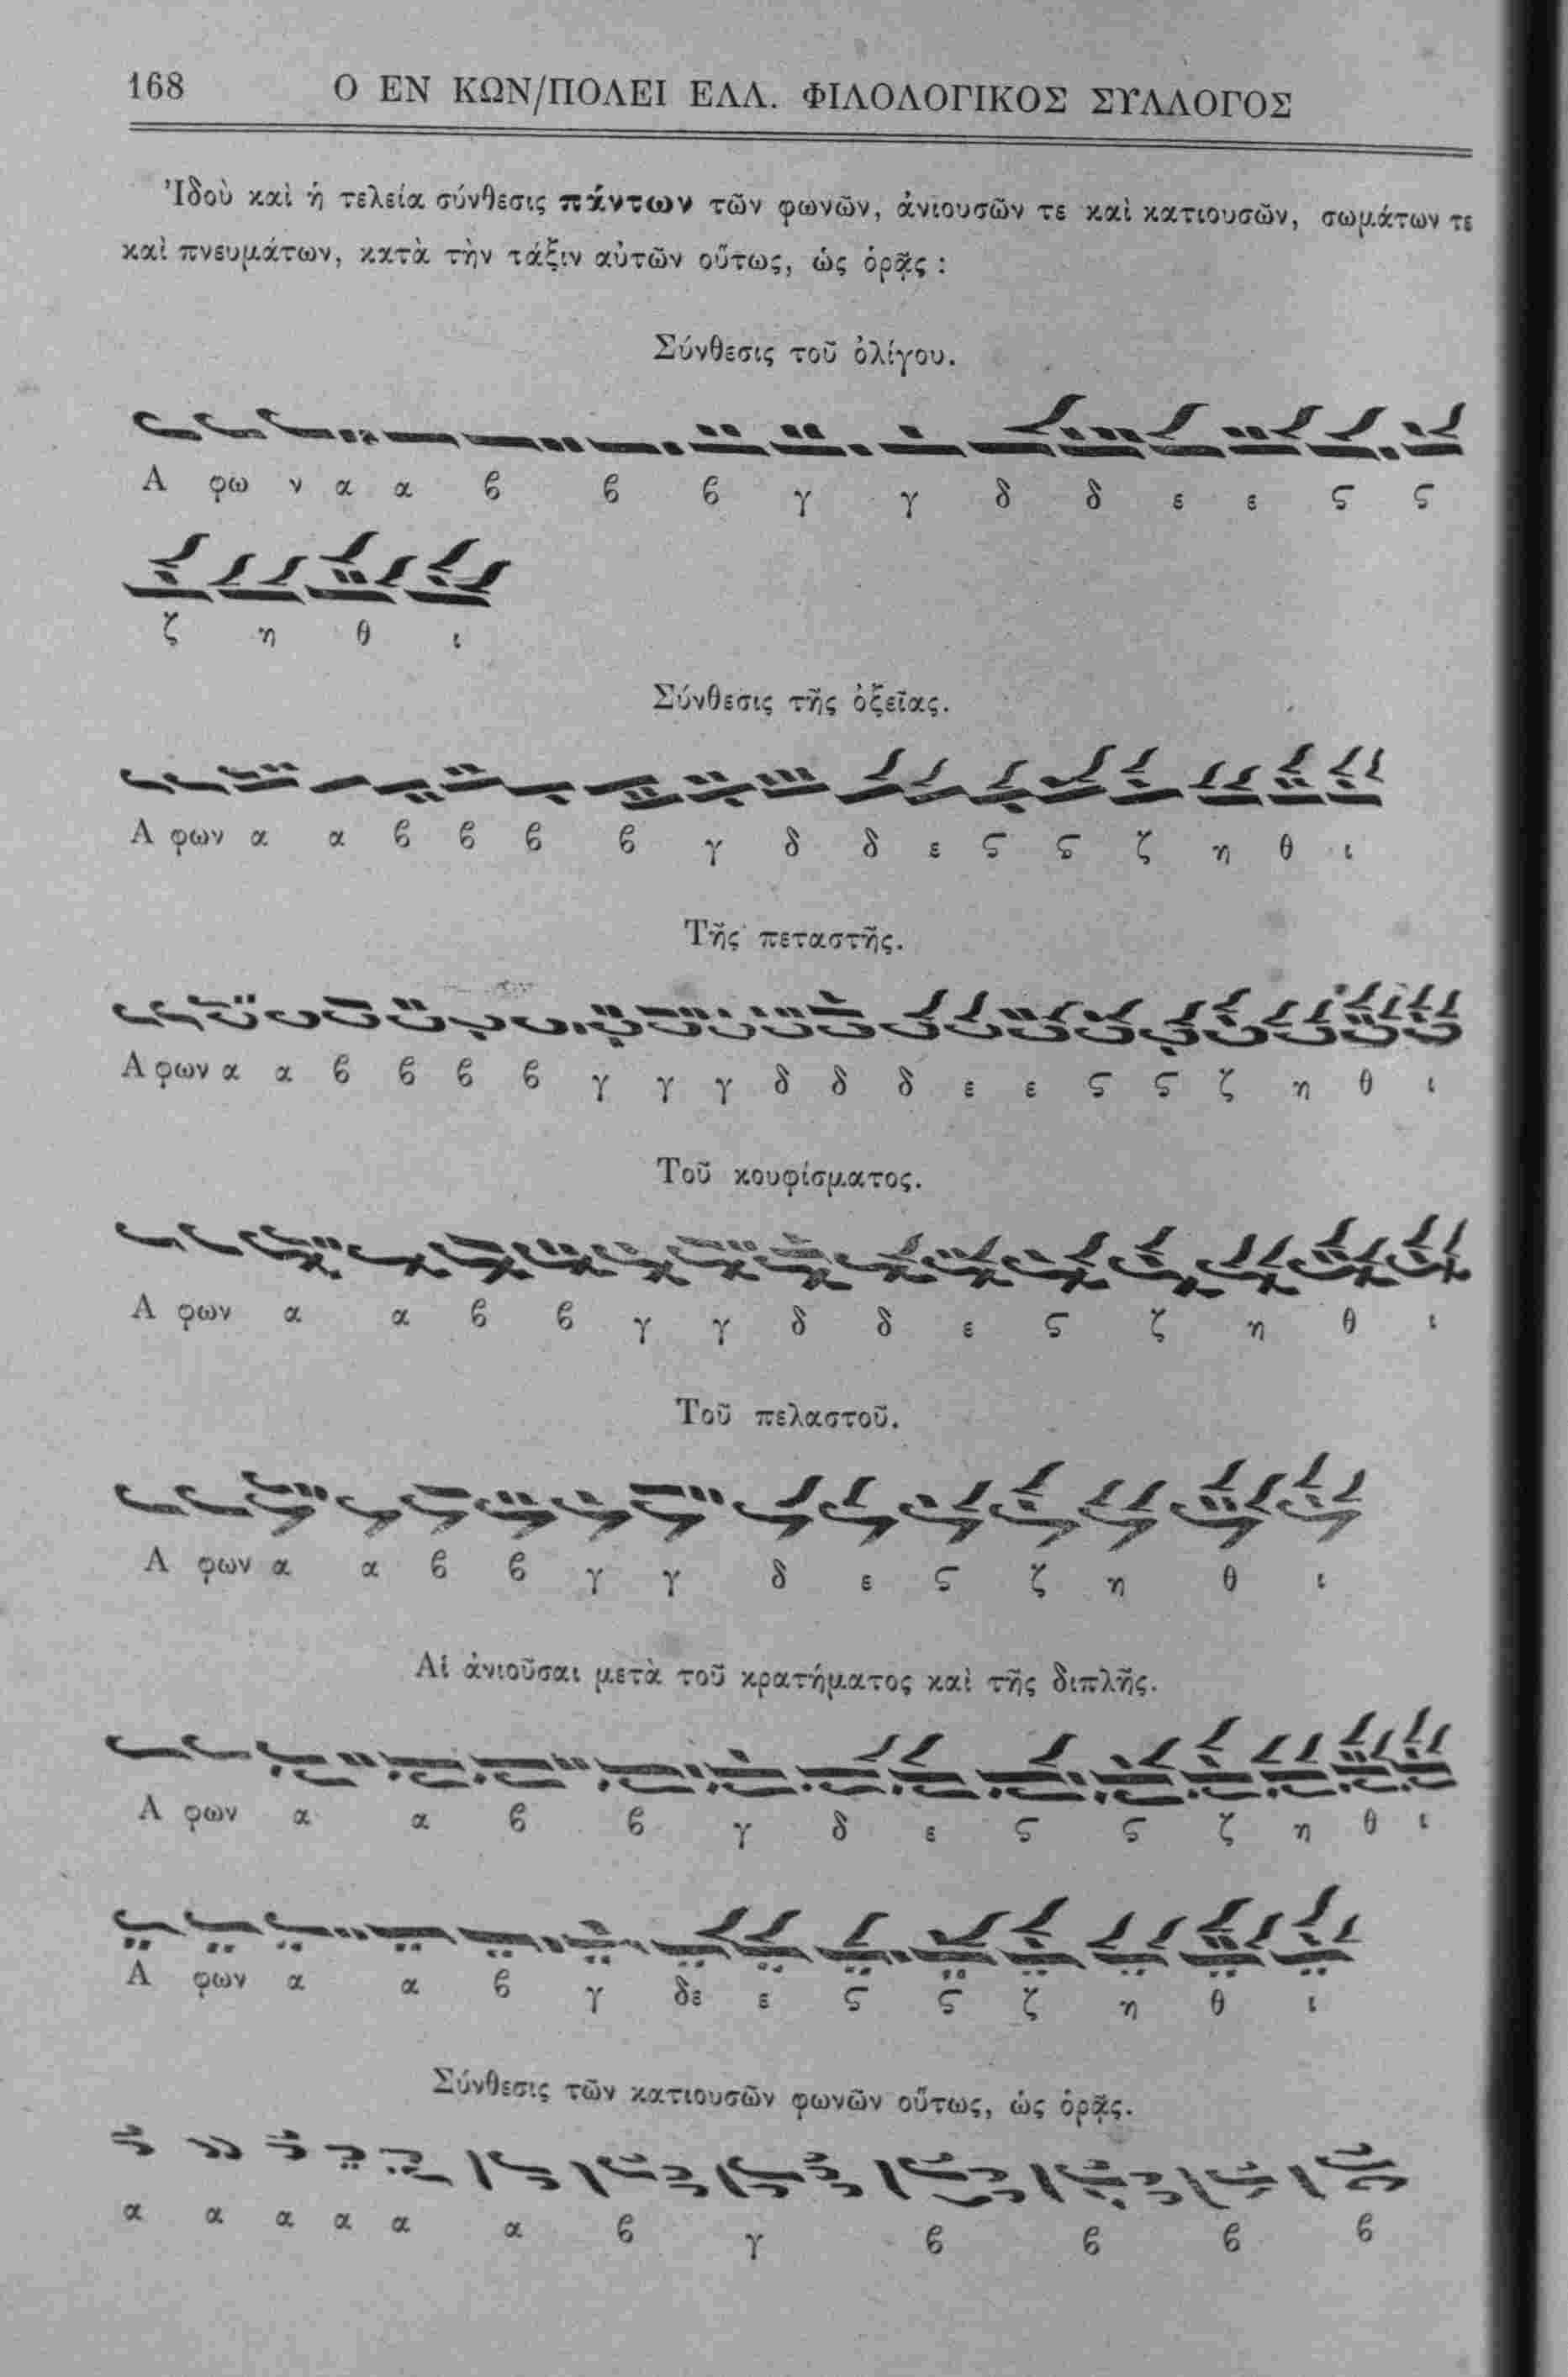 168 Ο ΕΝ ΚΩΝ/ΠΟΛΕΙ ΕΛΛ. ΦΙΛΟΛΟΓΙΚΟΣ ΣΥΛΛΟΓΟΣ
Ἰδοὺ καὶ ἡ τελεία σύνθεσις πάντων τῶν φωνῶν, ἀνιουσῶν τε καὶ κατιουσῶν, σωμάτων τε
καὶ πνευμάτων, κατὰ τὴν τάξιν αὐτῶν οὕτως, ὡς ὁρᾷς :
Σύνθεσις τοῦ ὀλίγου.
Α φω ν α α ϐ ϐ ϐ γ γ δ δ ε ε ς ς
ζ η θ ι
Σύνθεσις τῆς ὀξεῖας.
Α φων α α ϐ ϐ ϐ ϐ γ δ δ ε ς ς ζ η θ ι
Τῆς πεταστῆς.
Α φων α α ϐ ϐ ϐ ϐ γ γ γ δ δ δ ε ε ς ς ζ η θ ι
Τοῦ κουφίσματος.
Α φων α α ϐ ϐ γ γ δ δ ε ς ζ η θ ι
Τοῦ πελαστοῦ.
Α φων α α ϐ ϐ γ γ δ ε ς ζ η θ ι
Αἱ ἀνιοῦσαι μετὰ τοῦ κρατήματος καὶ τῆς διπλῆς.
Α φων α α ϐ ϐ γ δ ε ς ς ζ η θ ι
Α φων α α ϐ γ δε ε ς ς ζ η θ ι
Σύνθεσις τῶν κατιουσῶν φωνῶν οὕτως, ὡς ὁρᾷς.
α α α α α α ϐ γ ϐ ϐ ϐ ϐ